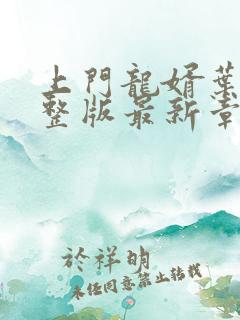 上門龍婿葉
整版最新章
於祥明
未經同意禁止轉載